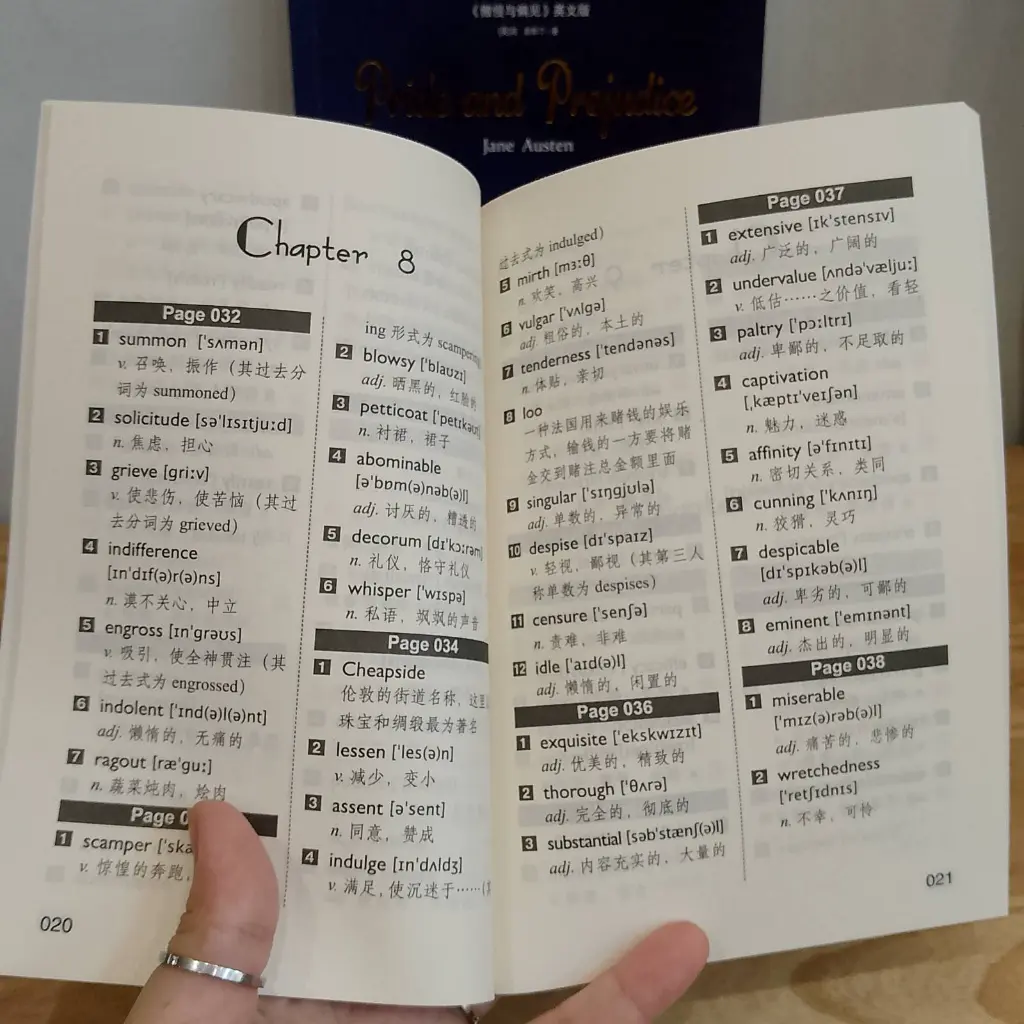 《傲慢与偏见》英文版
Pride and Prejudice
Jane Austen
Chapter 8
Page 032
1 summon ['sʌmən]
v. 召唤，振作（其过去分
词为 summoned）
2 solicitude [sə'lɪsɪtjuːd]
n. 焦虑，担心
3 grieve [griːv]
v. 使悲伤，使苦恼（其过
去分词为 grieved）
4 indifference
[ɪn'dɪf(ə)r(ə)ns]
n. 漠不关心，中立
5 engross [ɪn'grəʊs]
v. 吸引，使全神贯注（其
过去式为 engrossed）
6 indolent ['ɪnd(ə)l(ə)nt]
adj. 懒惰的，无痛的
7 ragout [ræ'guː]
n. 蔬菜炖肉，烩肉
Page
1 scamper ['ska
v. 惊惶的奔跑，
020
ing 形式为 scampering
2 blowsy ['blaʊzɪ]
adj. 晒黑的，红脸的
3 petticoat ['petɪkəʊt]
n. 衬裙，裙子
4 abominable
[ə'bɒm(ə)nəb(ə)l]
adj. 讨厌的，糟透的
5 decorum [dɪ'kɔːrəm]
n. 礼仪，恪守礼仪
6 whisper ['wɪspə]
n. 私语，飒飒的声音
Page 034
1 Cheapside
伦敦的街道名称，这里
珠宝和绸缎最为著名
2 lessen ['les(ə)n]
v. 减少，变小
3 assent [ə'sent]
n. 同意，赞成
4 indulge [ɪn'dʌldʒ]
v. 满足，使沉迷于……（
过去式为 indulged）
5 mirth [mɜːθ]
n. 欢笑，高兴
6 vulgar ['vʌlgə]
adj. 粗俗的，本土的
7 tenderness ['tendənəs]
n. 体贴，亲切
8 loo
一种法国用来赌钱的娱乐
方式，输钱的一方要将赌
金交到赌注总金额里面
9 singular ['sɪŋgjʊlə]
adj. 单数的，异常的
10 despise [dɪ'spaɪz]
v. 轻视，鄙视（其第三人
称单数为 despises）
11 censure ['senʃə]
n. 责难，非难
12 idle ['aɪd(ə)l]
adj. 懒惰的，闲置的
Page 036
1 exquisite ['ekskwɪzɪt]
adj. 优美的，精致的
2 thorough ['θʌrə]
adj. 完全的，彻底的
3 substantial [səb'stænʃ(ə)l]
adj. 内容充实的，大量的
Page 037
1 extensive [ɪk'stensɪv]
adj. 广泛的，广阔的
2 undervalue [ʌndə'væljuː]
v. 低估……之价值，看轻
3 paltry ['pɔːltrɪ]
adj. 卑鄙的，不足取的
4 captivation
[ˌkæptɪ'veɪʃən]
n. 魅力，迷惑
5 affinity [ə'fɪnɪtɪ]
n. 密切关系，类同
6 cunning ['kʌnɪŋ]
n. 狡猾，灵巧
7 despicable
[dɪ'spɪkəb(ə)l]
adj. 卑劣的，可鄙的
8 eminent ['emɪnənt]
adj. 杰出的，明显的
Page 038
1 miserable
['mɪz(ə)rəb(ə)l]
adj. 痛苦的，悲惨的
2 wretchedness
['retʃɪdnɪs]
n. 不幸，可怜
021